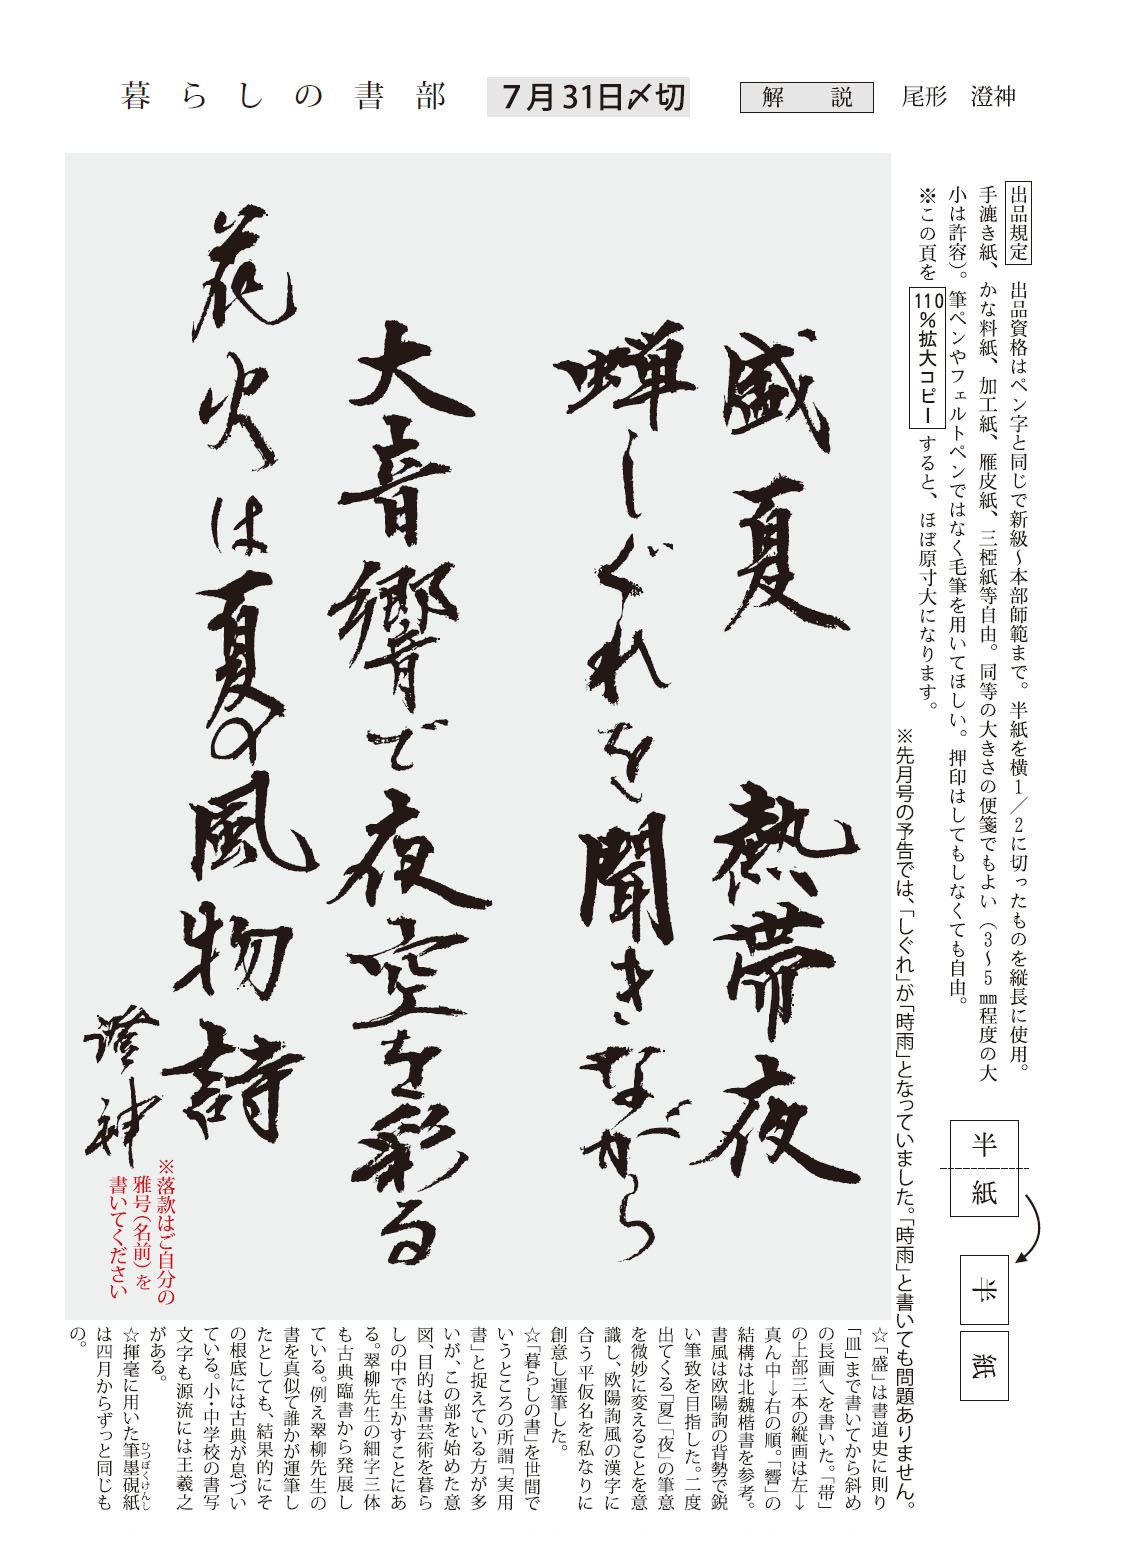 暮らしの書部 7月31日〆切 解説 尾形 澄神
出品規定 出品資格はペン字と同じで新級～本部師範まで。半紙を横1／2に切ったものを縦長に使用。
手漉き紙、かな料紙、加工紙、雁皮紙、三椏紙等自由。同等の大きさの便箋でもよい（3～5㎜程度の大
小は許容）。筆ペンやフェルトペンではなく毛筆を用いてほしい。押印はしてもしなくても自由。
※この頁を110％拡大コピーすると、ほぼ原寸大になります。
※先月号の予告では、「しぐれ」が「時雨」となっていました。「時雨」と書いても問題ありません。
半紙
半
紙
盛夏 熱帯夜
蝉しぐれを聞きながら
大音響で夜空を彩る
花火は夏の風物詩
澄神
※落款はご自分の
雅号（名前）を
書いてください
☆「盛」は書道史に則り
「皿」まで書いてから斜め
の長画乀を書いた。「帯」
の上部三本の縦画は左→
真ん中→右の順。「響」の
結構は北魏楷書を参考。
書風は欧陽詢の背勢で鋭
い筆致を目指した。二度
出てくる「夏」「夜」の筆意
を微妙に変えることを意
識し、欧陽詢風の漢字に
合う平仮名を私なりに
創意し運筆した。
☆「暮らしの書」を世間で
いうところの所謂「実用
書」と捉えている方が多
いが、この部を始めた意
図、目的は書芸術を暮ら
しの中で生かすことにあ
る。翠柳先生の細字三体
も古典臨書から発展し
ている。例え翠柳先生の
書を真似て誰かが運筆し
たとしても、結果的にそ
の根底には古典が息づい
ている。小・中学校の書写
文字も源流には王羲之
がある。
☆揮毫に用いた筆墨硯紙
ひつぼくけんし
は四月からずっと同じも
の。